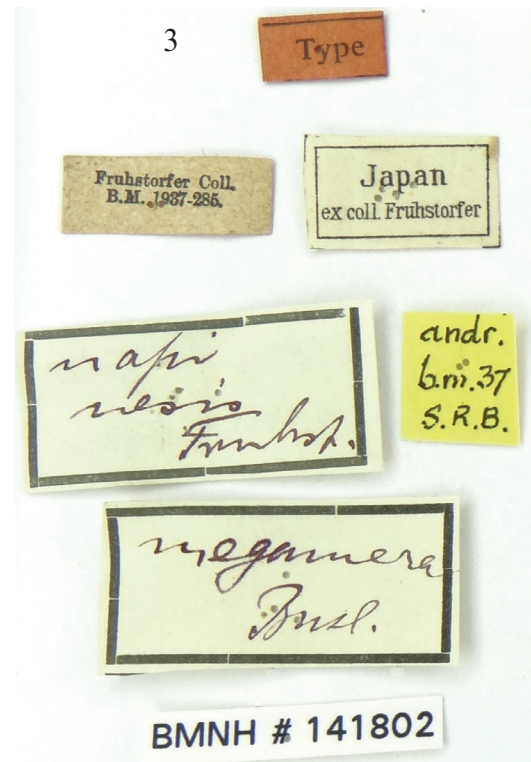 3
Type
Fruhstorfer Coll.
B.M. 1937-285.
Japan
ex coll. Fruhstorfer
napi
nesis
Fruhst.
andr.
b.m. 37
S.R.B.
megamera
Butl.
BMNH # 141802